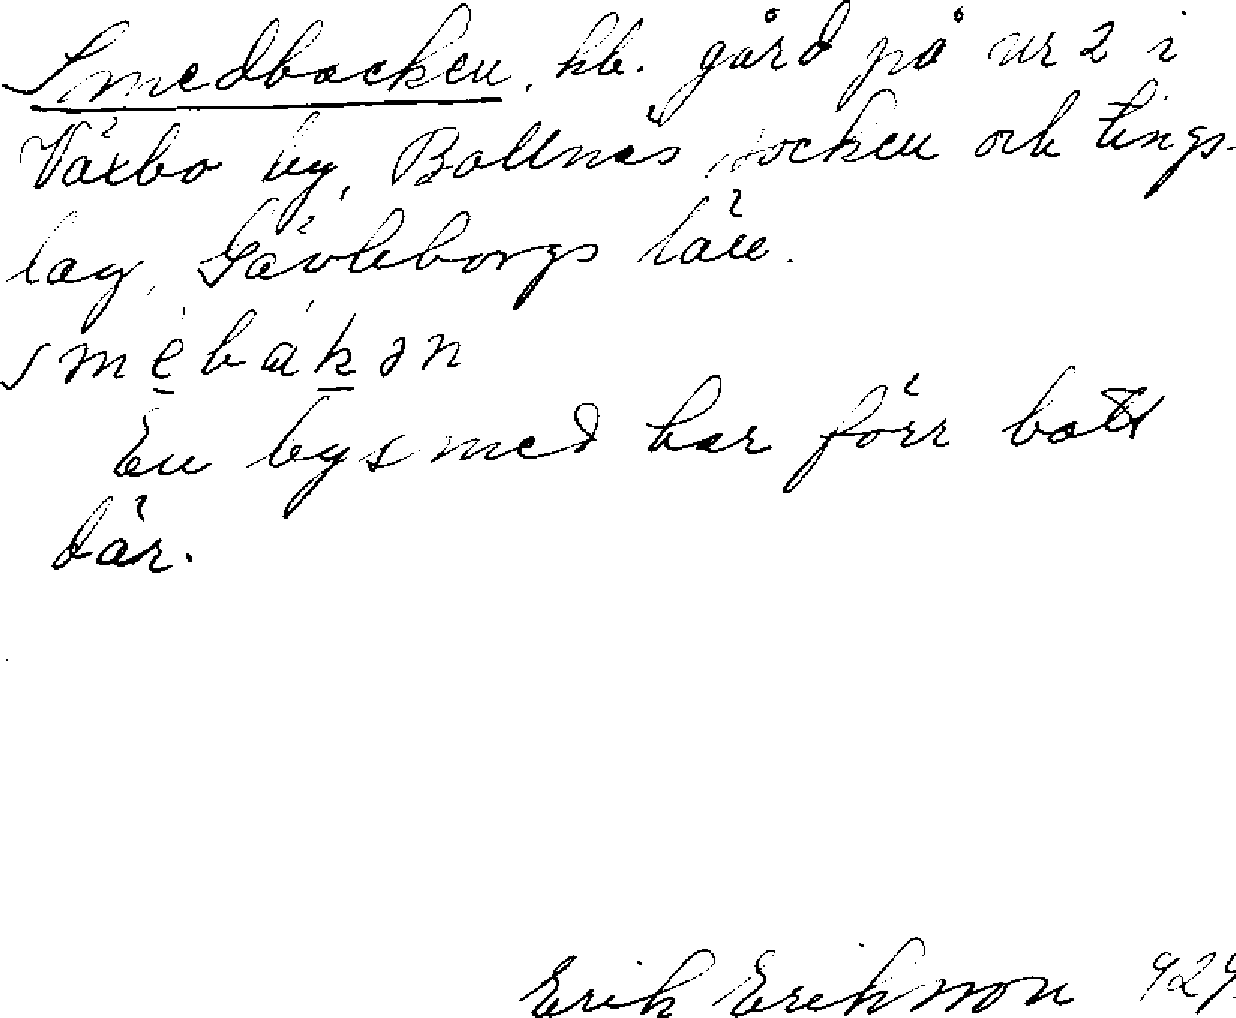 Smedbacken, hb. gård på nr 2 i
Växbo by, Bollnäs socken och tings-
lag, Gävleborgs län.
smèbàkən
En bysmed har förr bott
där.
Erik Erikson 929